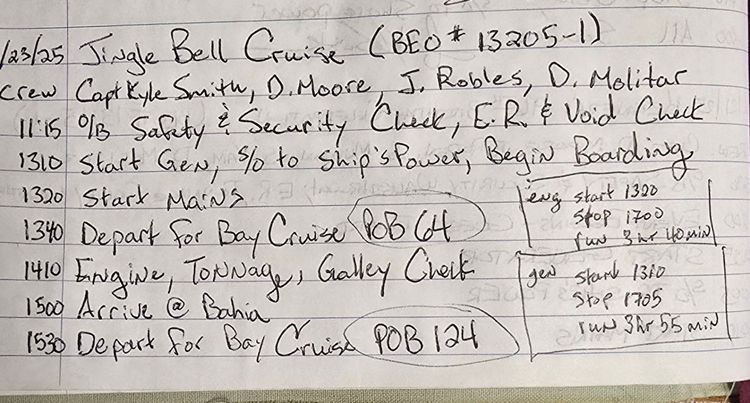 /23/25 Jingle Bell Cruise (BEO# 13205-1)
Crew Capt Kyle Smith, D. Moore, J. Robles, D. Molitar
11:15 O/B Safety & Security Check, E.R. & Void Check
1310 Start Gen, S/O to Ship's Power, Begin Boarding
1320 Start Mains
1340 Depart for Bay Cruise POB 64
1410 Engine, Tonnage, Galley Check
1500 Arrive @ Bahia
1530 Depart for Bay Cruise POB 124
eng start 1320
stop 1700
run 3 hr 40 min
gen start 1310
stop 1705
run 3 hr 55 min